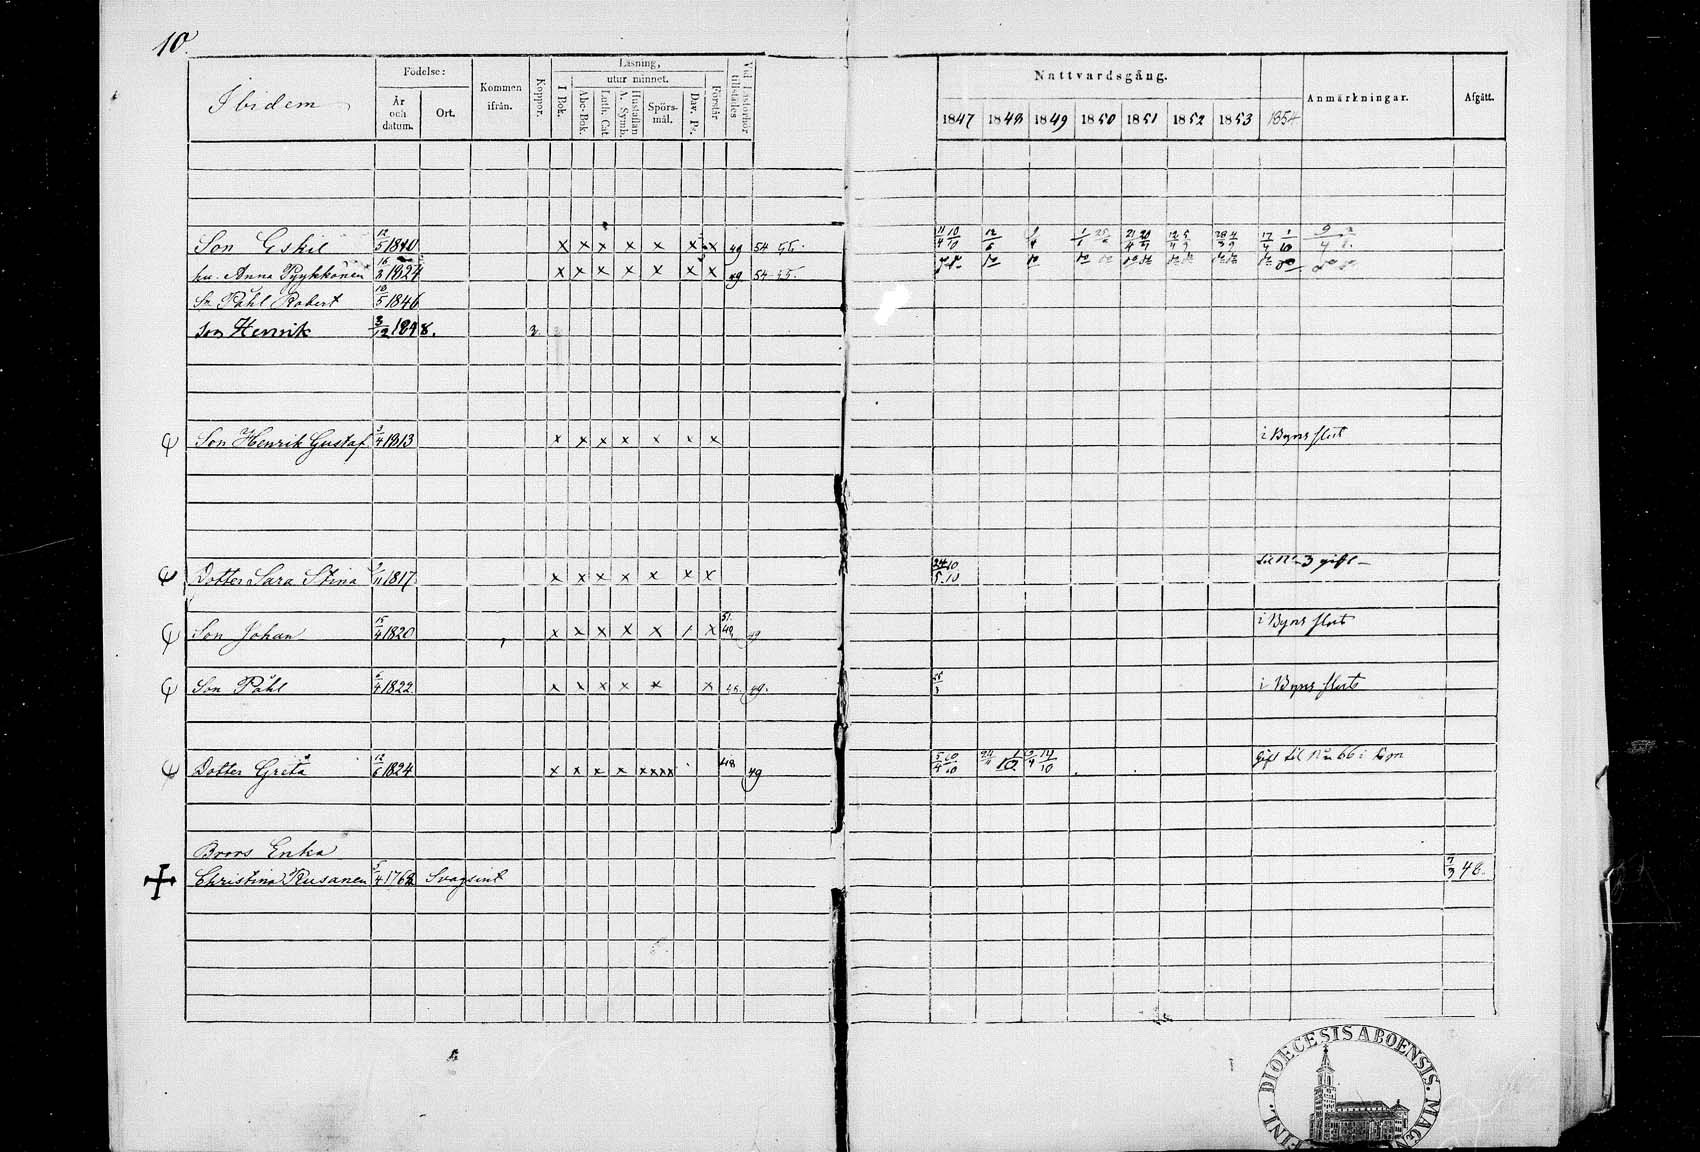 10.
Ibidem
Födelse:
År och datum.
Ort.
Kommen ifrån.
Koppor.
Läsning,
utur minnet.
I Bok.
Abc-Bok.
Luth. Cat.
A. Symb.
Hustaflan
Spörs-mål.
Dav. Ps.
Förstår
Vid Läsförhör tillstädes
Nattvardsgång.
1847 1848 1849 1850 1851 1852 1853 1854
Anmärkningar.
Afgått.
Son Eskil 12/5 1840 x x x x x x x 49 54 55.
hu. Anna Pyykkönen 16/3 1824 x x x x x x x 49 54-55.
Sn Påhl Robert 10/5 1846
Son Henrik 3/12 1848. 3.
Son Henrik Gustaf 3/4 1813 x x x x x x x i Byns slut
Dotter Sara Stina 1817 x x x x x x x 24/5 10/10 till No 3 gift
Son Johan 15/4 1820 x x x x x / x 51. 49 49 i Byns slut
Son Påhl 6/4 1822 x x x x x x 49. i Byns slut
Dotter Greta 12/6 1824 x x x x xxxx 48 49 Gift till No 66 i Kom
Brors Enka
Christina Rusanen 5/4 1762 Svagsint 7/3 48.
FINL. DIOECESIS ABOENSIS. MAGN